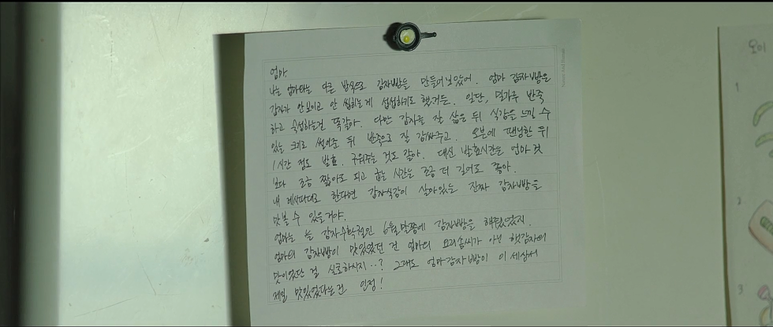 엄마
나는 엄마와는 다른 방식으로 감자빵을 만들어 보았어. 엄마 감자빵은
감자가 안보이고 안 씹히는게 섭섭하기도 했거든. 일단, 밀가루 반죽
하고 숙성하는건 똑같아. 다만 감자는 잘 삶은 뒤 식감을 느낄 수
있는 크기로 썰어준 뒤 반죽으로 잘 감싸주고. 오븐에 팬닝한 뒤
1시간 정도 발효. 구워주는 것도 같아. 대신 발효시간은 엄마 것
보다 조금 짧아도 되고 굽는 시간은 조금 더 길어도 좋아.
내 레시피대로 한다면 감자식감이 살아있는 진짜 감자빵을
맛볼 수 있을거야.
엄마는 늘 감자수확철인 6월말쯤에 감자빵을 해줬었지.
엄마의 감자빵이 맛있었던 건 엄마의 요리솜씨가 아닌 햇감자의
맛이었단 걸 실토하시지..? 그래도 엄마감자빵이 이 세상에서
제일 맛있었다는건 인정!
오이
1
2
3